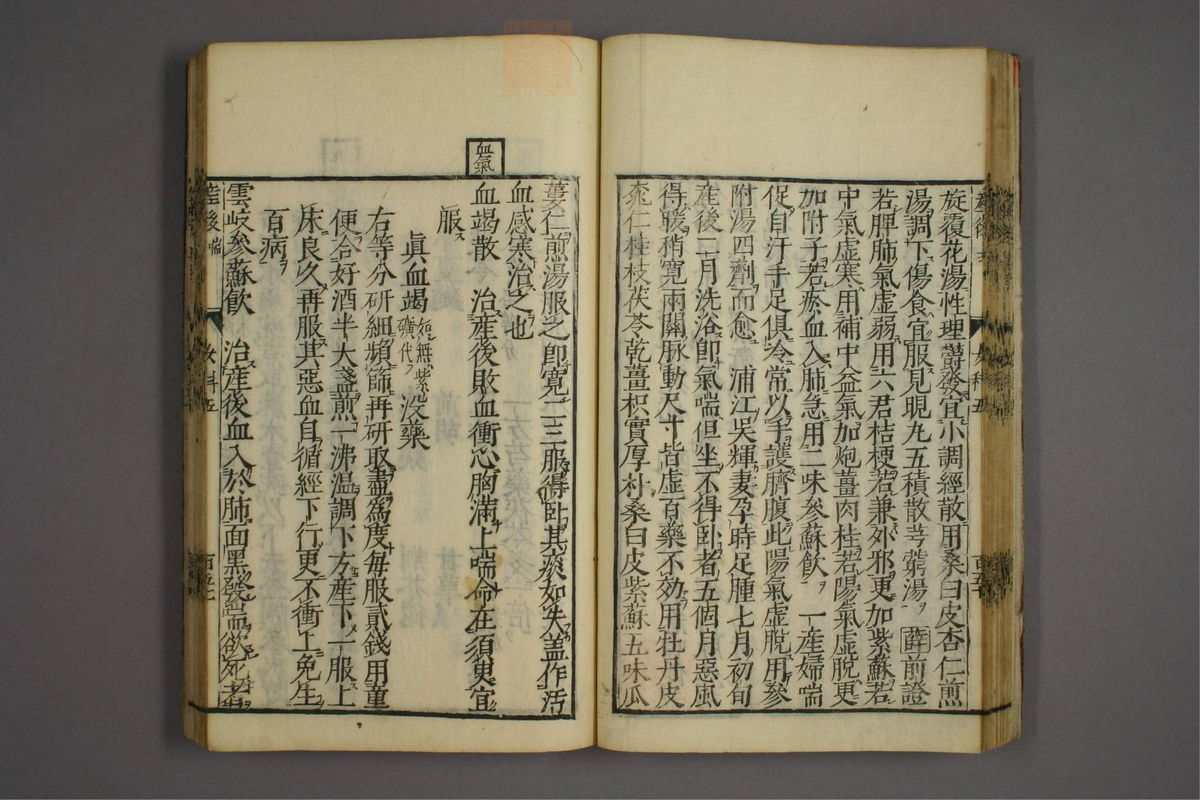 旋覆花湯性理鬱發宜小調經散用桑白皮杏仁煎
湯調下傷食宜服見晛丸五積散芎藭湯 薛前證
若脾肺氣虛弱用六君桔梗若兼外邪更加紫蘇若
中氣虛寒用補中益氣加炮薑肉桂若陽氣虛脫更
加附子若瘀血入肺急用二味參蘇飲 一產婦喘
促自汗手足俱冷常以手護臍腹此陽氣虛脫用參
附湯四劑而愈 浦江吳輝妻孕時足腫七月初旬
產後二月洗浴即氣喘但坐不得臥者五個月惡風
得暖稍寬兩關脉動尺寸皆虛百藥不効用牡丹皮
桃仁桂枝茯苓乾薑枳實厚朴桑白皮紫蘇五味瓜
蔞仁煎湯服之即寬二三服得臥其痰如失蓋作汚
血感寒治之也
血氣
血竭散 治產後敗血衝心胸滿上喘命在須臾宜
服
眞血竭 如無紫礦代 沒藥
右等分研細頻篩再研取盡為度每服貳錢用童
便合好酒半大盞煎一沸温調下方產下一服上
床良久再服其惡血自循經下行更不衝上免生
百病
雲岐參蘇飲 治產後血入於肺面黑發喘欲死者
產後喘 女科五